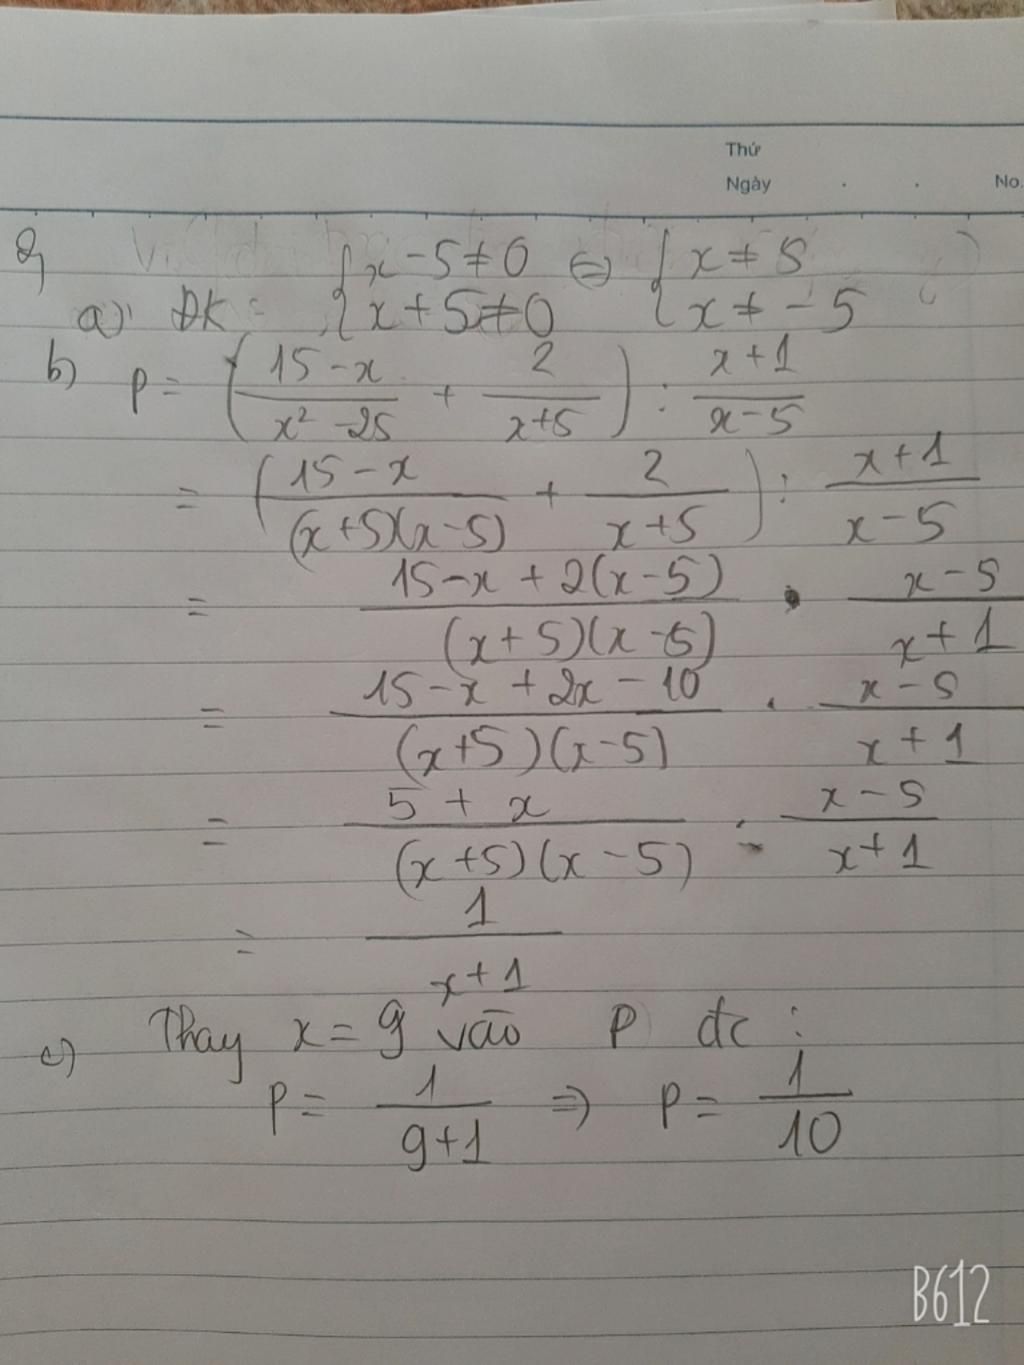 Thứ
Ngày . . No.
2,
a) ĐK: { x - 5 ≠ 0 ⇔ { x ≠ 5
{ x + 5 ≠ 0 { x ≠ - 5
b) P = ( (15 - x)/(x² - 25) + 2/(x+5) ) : (x+1)/(x-5)
= ( (15 - x)/((x+5)(x-5)) + 2/(x+5) ) : (x+1)/(x-5)
= (15 - x + 2(x-5))/((x+5)(x-5)) . (x-5)/(x+1)
= (15 - x + 2x - 10)/((x+5)(x-5)) . (x-5)/(x+1)
= (5 + x)/((x+5)(x-5)) . (x-5)/(x+1)
= 1/(x+1)
c) Thay x = 9 vào P đc :
P = 1/(9+1) ⇒ P = 1/10
B612